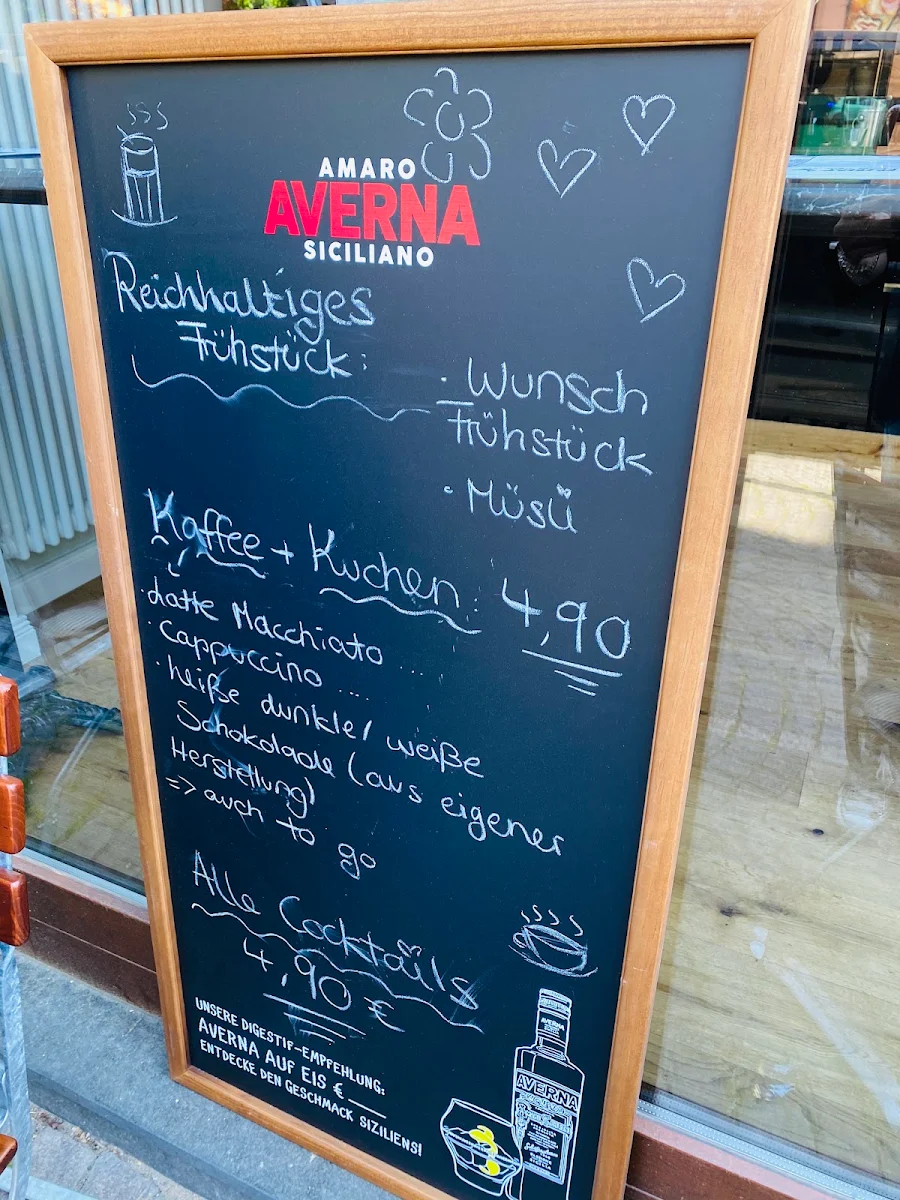 AMARO
AVERNA
SICILIANO
Reichhaltiges
Frühstück:
· Wunsch
Frühstück
· Müsü
Kaffee + Kuchen: 4,90
· Latte Macchiato ...
· Cappuccino ....
· heiße dunkle/ weiße
Schokolade (aus eigener
Herstellung)
=> auch to go
Alle Cocktails
4,90 €
UNSERE DIGESTIF-EMPFEHLUNG:
AVERNA AUF EIS €
ENTDECKE DEN GESCHMACK SIZILIENS!
AVERNA
AVERNA